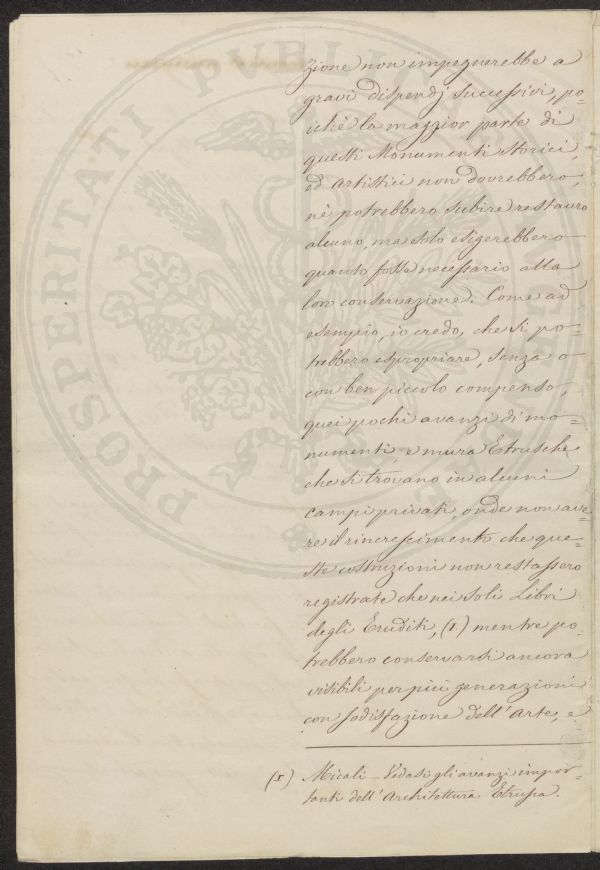 zione non impegnerebbe a
gravi dispendj successivi, po=
ichè la maggior parte di
questi Monumenti storici,
ed artistici non dovrebbero,
nè potrebbero subire restauro
alcuno, ma solo esigerebbero
quanto fosse necessario alla
loro conservazione. Come ad
esempio, io credo, che si po=
trebbero espropriare, senza o
con ben piccolo compenso,
quei pochi avanzi di mo=
numenti, e mura Etrusche
che si trovano in alcuni
campi privati, onde non ave=
re il rincrescimento che que=
ste costruzioni non restassero
registrate che nei soli Libri
degli Eruditi, (1.) mentre po=
trebbero conservarsi ancora
visibili per più generazioni
con sodisfazione dell'arte, e
(1) Micali – Vedasi gli avanzi impor=
tanti dell'Architettura Etrusca.
PROSPERITATI PVBLIC